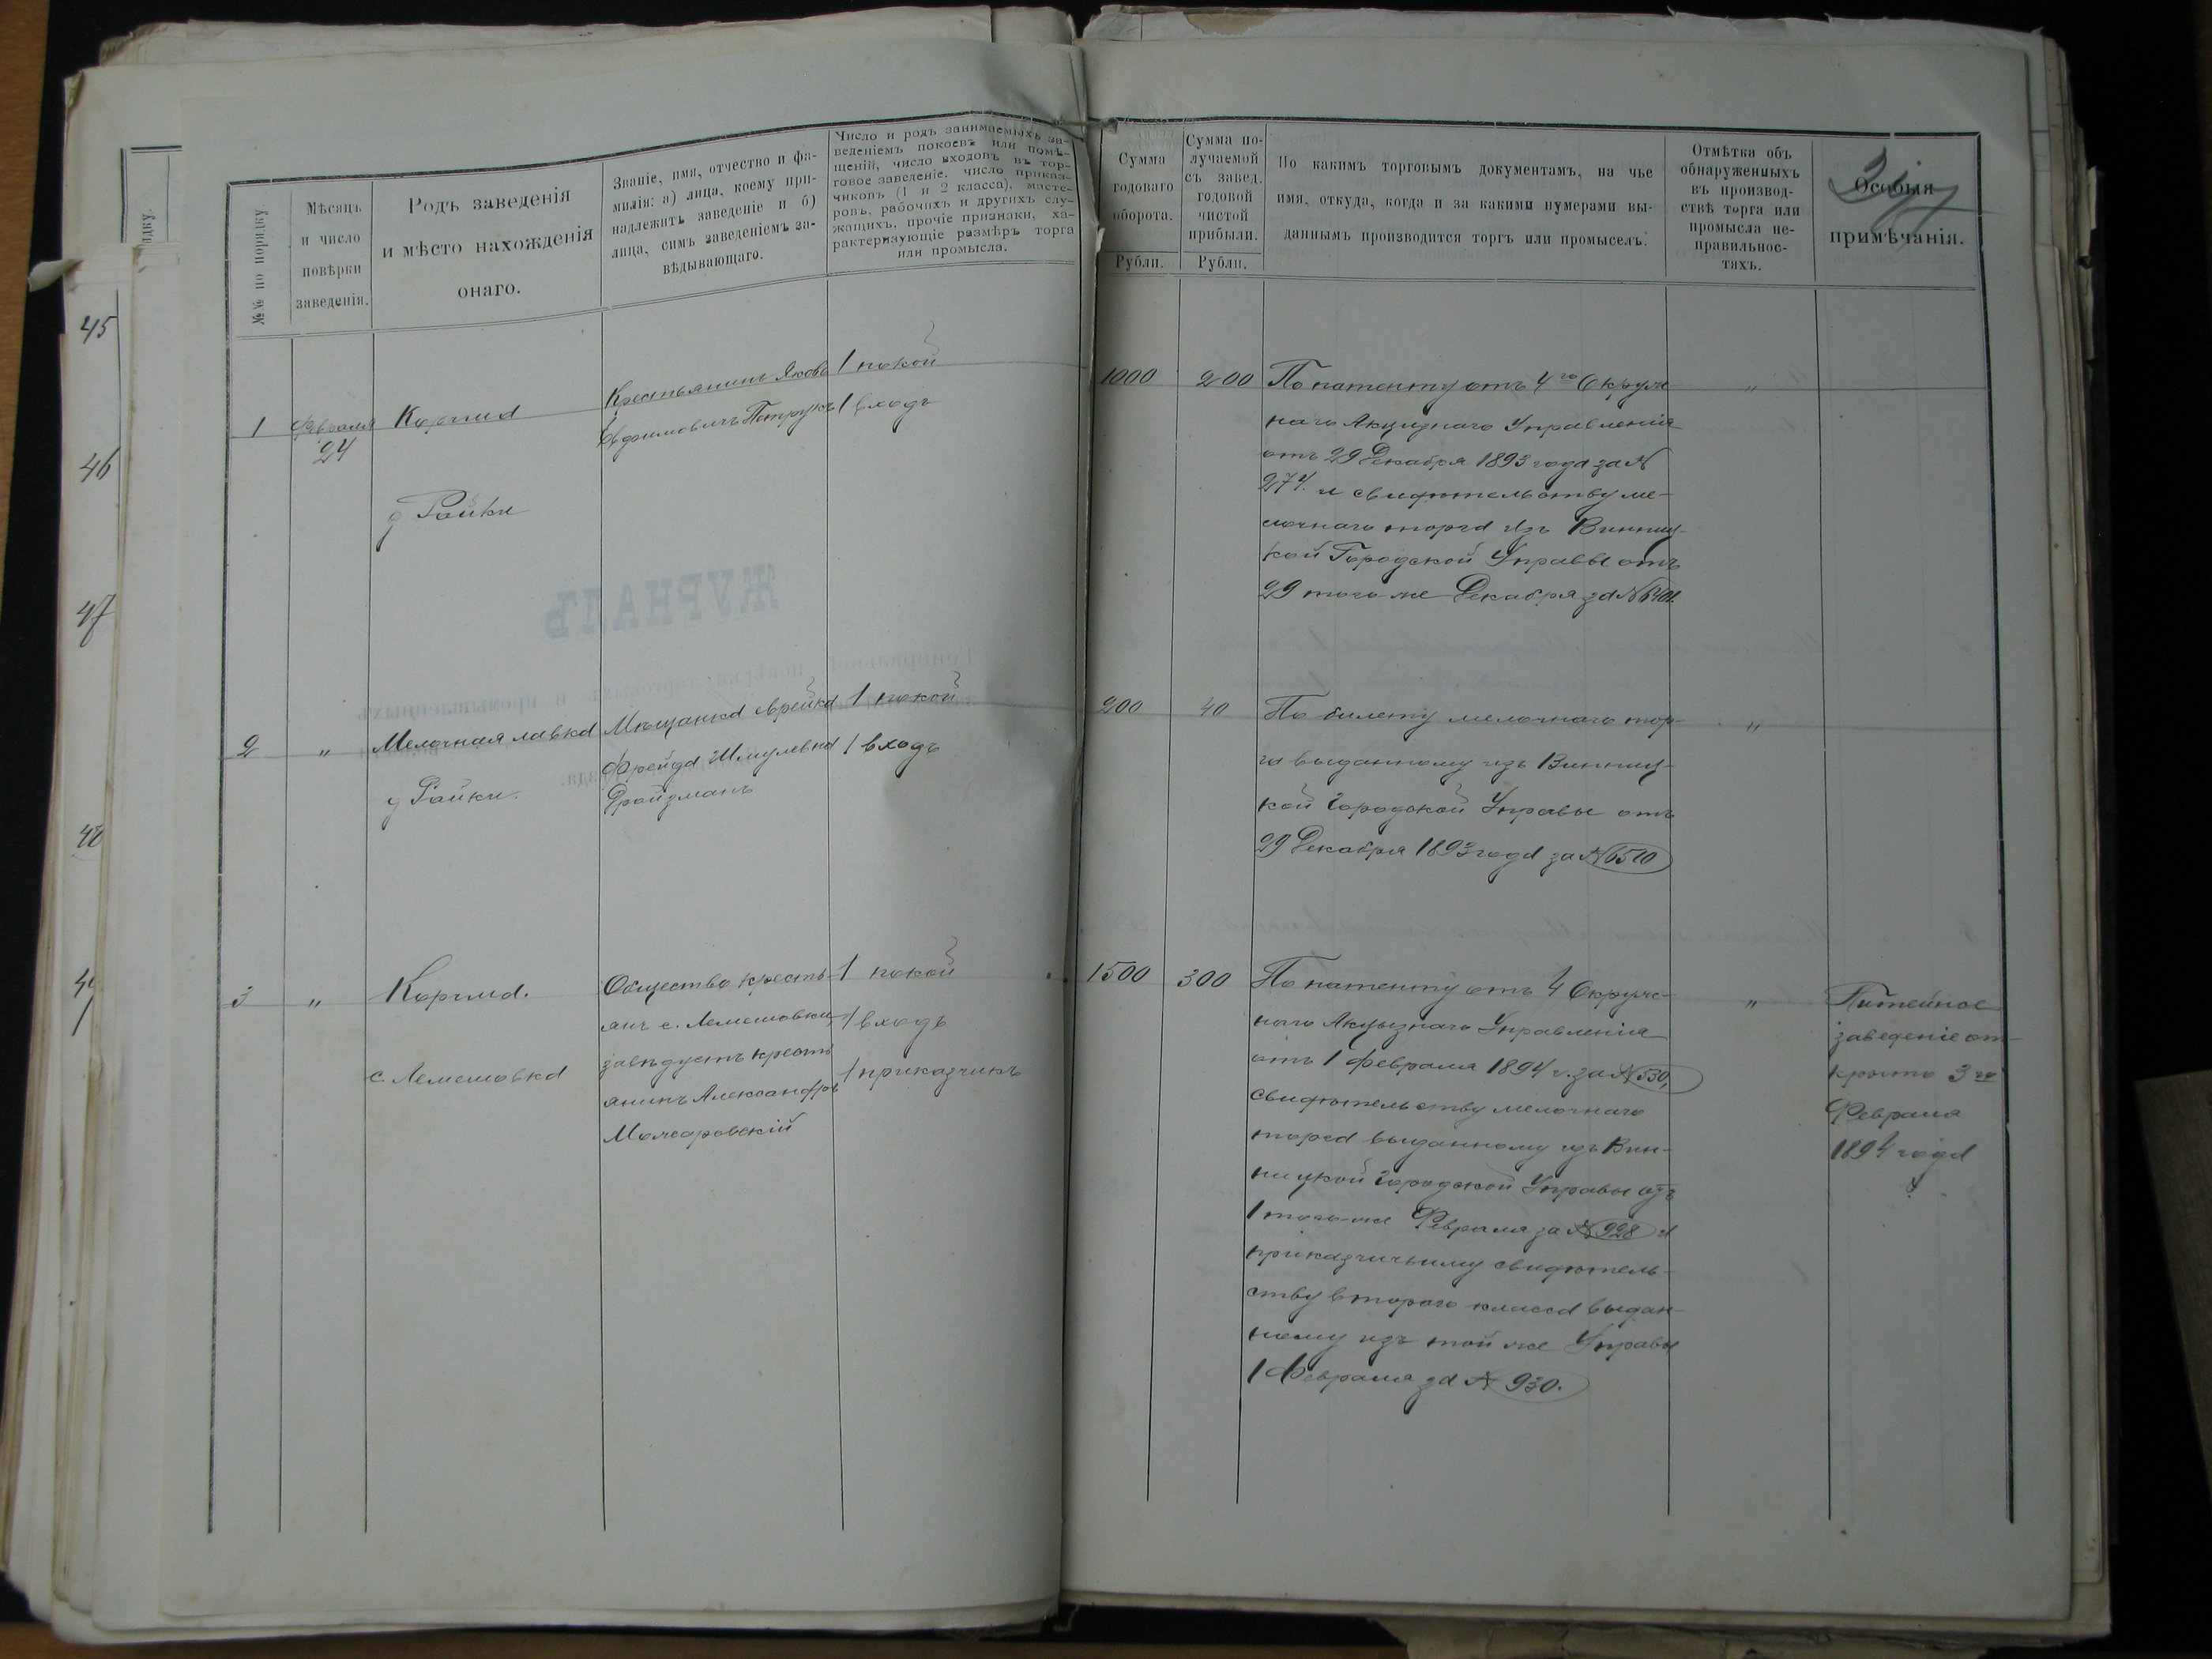 №№ по порядку.
Мѣсяцъ
и число
повѣрки
заведенія.
Родъ заведенія
и мѣсто нахожденія
онаго.
Званіе, имя, отчество и фа-
милія: а) лица, коему при-
надлежитъ заведеніе и б)
лица, симъ заведеніемъ за-
вѣдывающаго.
Число и родъ занимаемыхъ за-
веденіемъ покоевъ или помѣ-
щеній, число входовъ въ тор-
говое заведеніе, число приказ-
чиковъ (1 и 2 класса), масте-
ровъ, рабочихъ и другихъ слу-
жащихъ, прочіе признаки, ха-
рактеризующіе размѣръ торга
или промысла.
Сумма
годоваго
оборота.
Рубли.
Сумма по-
лучаемой
съ завед.
годовой
чистой
прибыли.
Рубли.
По какимъ торговымъ документамъ, на чье
имя, откуда, когда и за какими нумерами вы-
даннымъ производится торгъ или промыселъ.
Отмѣтка объ
обнаруженныхъ
въ производ-
ствѣ торга или
промысла не-
правильнос-
тяхъ.
Особыя
примѣчанія.
45
46
47
48
1
Февраля
24
Корчма
д Райки
Крестьянинъ Яковъ
Евдокимовичъ Петрукъ
1 покой
1 входъ
1000
200
По патенту отъ 4го Окруж-
наго Акцизнаго Управленія
отъ 29 Декабря 1893 года за №
274. и свидѣтельству ме-
лочнаго торга изъ Винниц-
кой Городской Управы отъ
29 того-же Декабря за №
"
2
"
Мелочная лавка
д Райки.
Мѣщанка еврейка
Фрейда Шмулевна
Фройдманъ
1 покой
1 входъ
200
40
По билету мелочнаго тор-
га выданному изъ Винниц-
кой Городской Управы отъ
29 Декабря 1893 года за № 6510
"
3
"
Корчма.
с. Лемешовка
Общество кресть-
янъ с. Лемешовки,
завѣдуетъ кресть
янинъ Александръ
Можаровскій
1 покой
1 входъ
1 приказчикъ
1500
300
По патенту отъ 4 Окруж-
наго Акцызнаго Управленія
отъ 1 Февраля 1894 г. за № 530,
свидѣтельству мелочнаго
торга выданному изъ Вин-
ницкой Городской Управы отъ
1 того-же Февраля за № 928 и
приказчичьему свидѣтель-
ству второго класса выдан-
ному изъ той же Управы
1 Февраля за № 930.
"
Питейное
заведеніе от-
крыто 3го
Февраля
1894 года